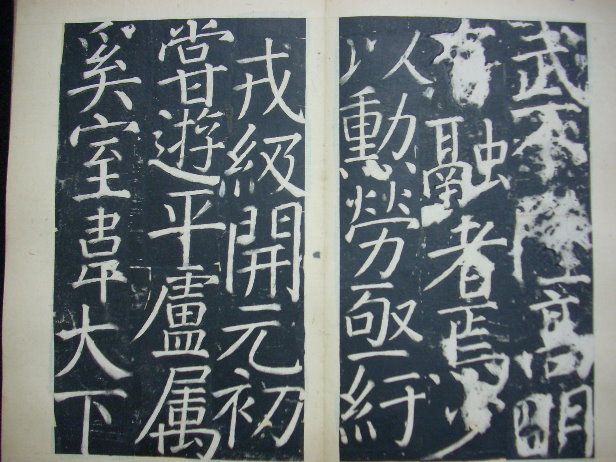 武不墜高明
有融者焉公
以勳勞亟紆
戎級開元初
嘗遊平盧属
奚室韋大下